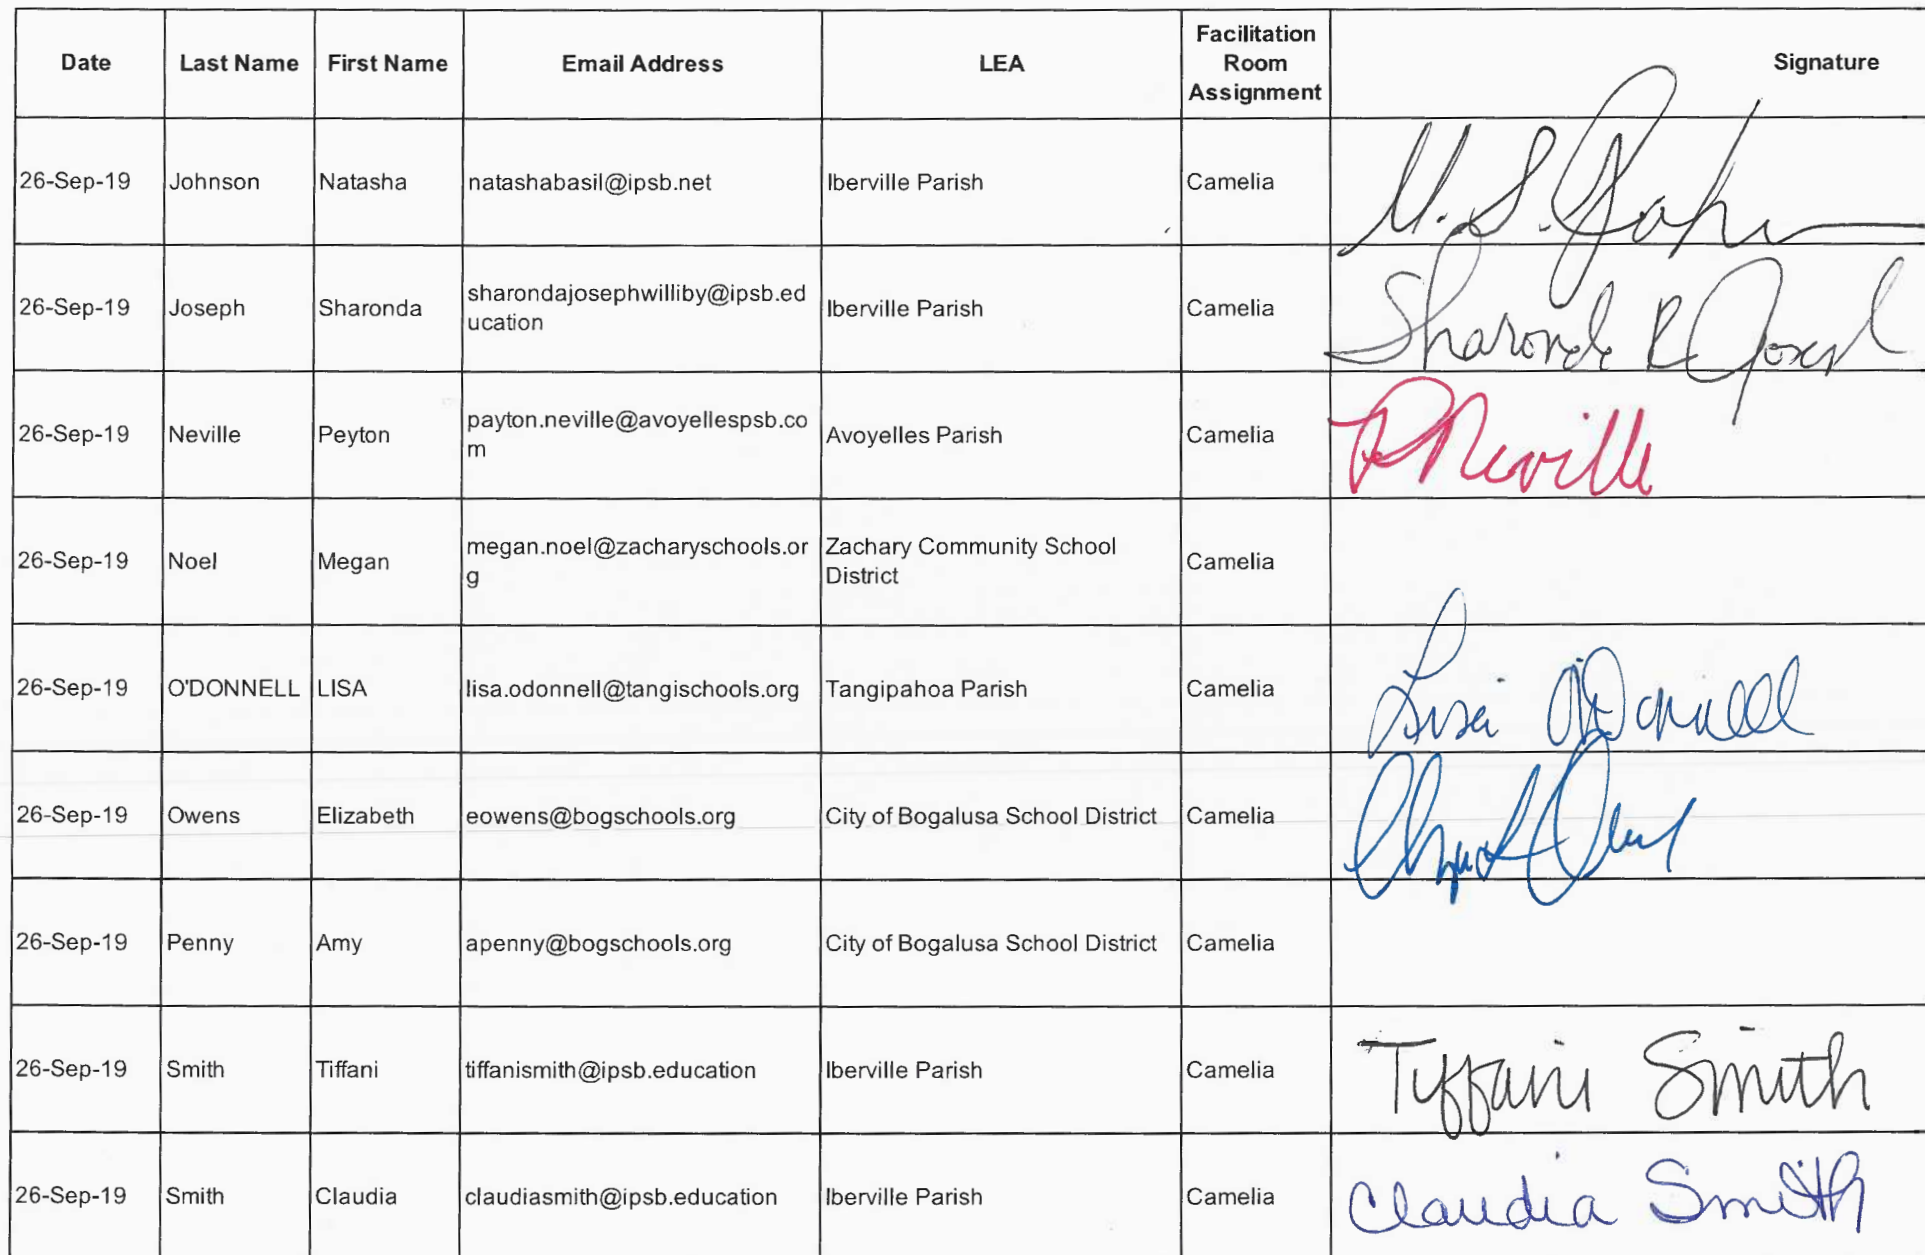 Date Last Name First Name Email Address LEA Facilitation Room Assignment Signature
26-Sep-19 Johnson Natasha natashabasil@ipsb.net Iberville Parish Camelia
26-Sep-19 Joseph Sharonda sharondajosephwilliby@ipsb.ed
ucation Iberville Parish Camelia Sharonda R Joseph
26-Sep-19 Neville Peyton payton.neville@avoyellespsb.co
m Avoyelles Parish Camelia P Neville
26-Sep-19 Noel Megan megan.noel@zacharyschools.or
g Zachary Community School
District Camelia
26-Sep-19 O'DONNELL LISA lisa.odonnell@tangischools.org Tangipahoa Parish Camelia Lisa O'Donnell
26-Sep-19 Owens Elizabeth eowens@bogschools.org City of Bogalusa School District Camelia
26-Sep-19 Penny Amy apenny@bogschools.org City of Bogalusa School District Camelia
26-Sep-19 Smith Tiffani tiffanismith@ipsb.education Iberville Parish Camelia Tiffani Smith
26-Sep-19 Smith Claudia claudiasmith@ipsb.education Iberville Parish Camelia Claudia Smith